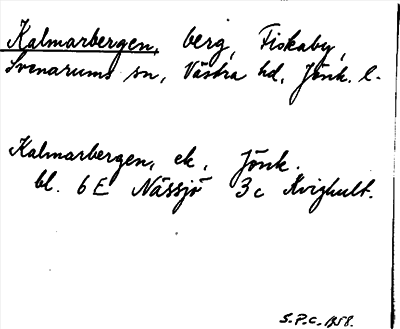 Kalmarbergen, berg, Fiskaby,
Svenarums sn, Västra hd, Jönk. l.
Kalmarbergen, ek, Jönk.
bl. 6E Nässjö 3c Kvighult.
S.P.C. 1958.